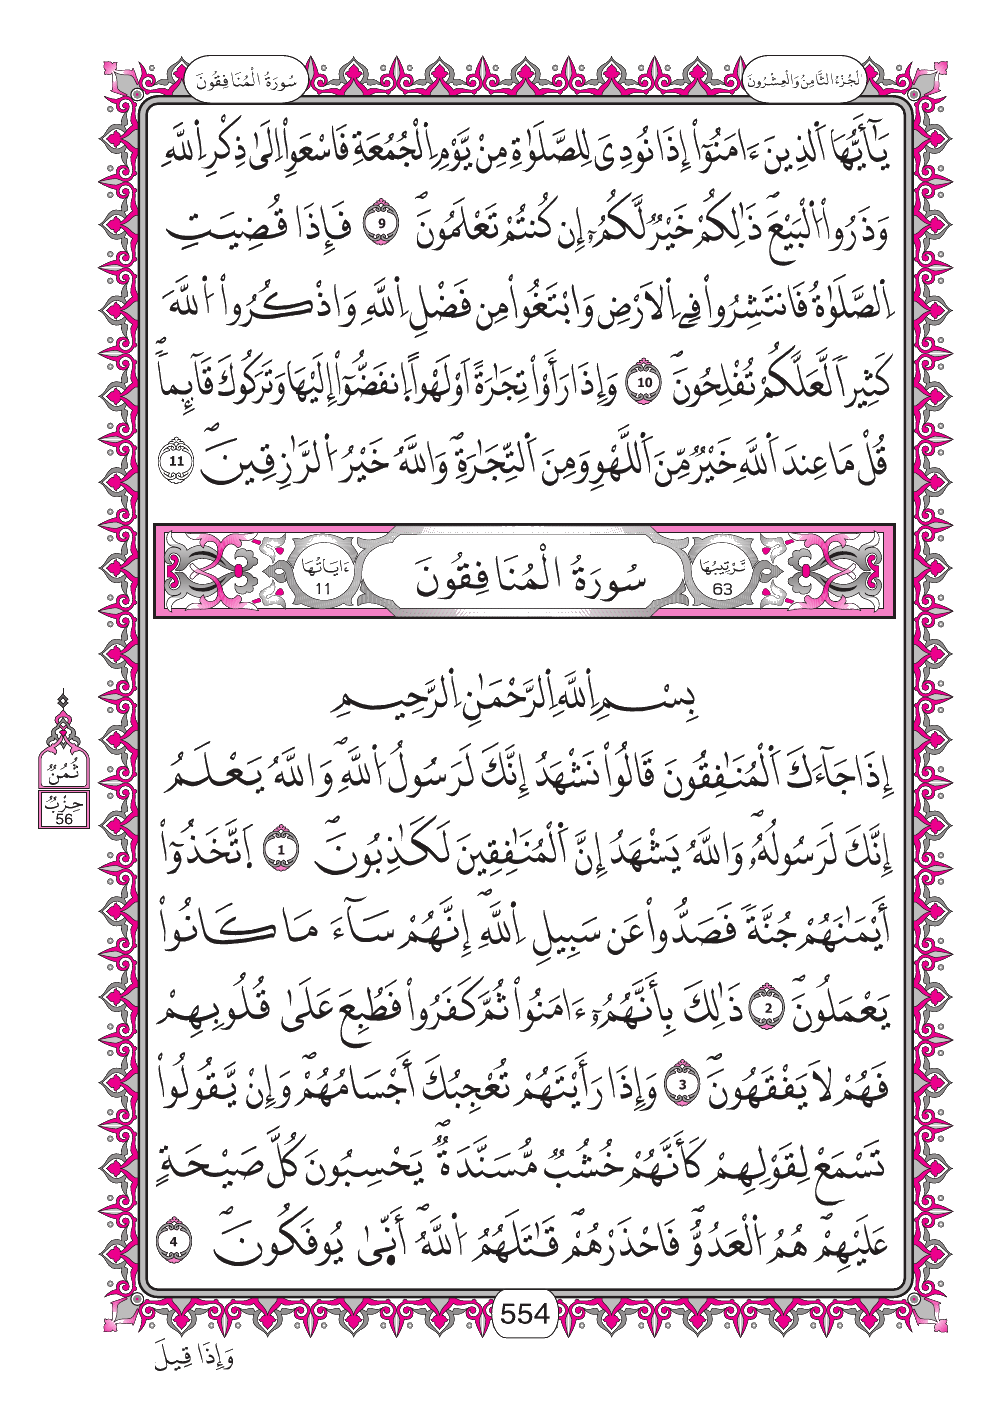 سُورَةُ الْمُنَافِقُونَ
اَلْجُزْءُ الثَّامِنُ وَالْعِشْرُونَ
يَـٰٓأَيُّهَا اَ۬لذِينَ ءَامَنُوٓاْ إِذَا نُودِىَ لِلصَّلَوٰةِ مِنْ يَّوْمِ اِ۬لْجُمُعَةِ فَاسْعَوِاْ اِلَىٰ ذِكْرِ اِ۬للَّهِ
وَذَرُواْ اُ۬لْبَيْعَ ذَٰلِكُمْ خَيْرٌ لَّكُمُۥٓ إِن كُنتُمْ تَعْلَمُونَ 9 فَإِذَا قُضِيَتِ
اِ۬لصَّلَوٰةُ فَانتَشِرُواْ فِى اِ۬لَارْضِ وَابْتَغُواْ مِن فَضْلِ اِ۬للَّهِ وَاذْكُرُواْ اُ۬للَّهَ
كَثِيراً لَّعَلَّكُمْ تُفْلِحُونَ 10 وَإِذَا رَأَوْاْ تِجَـٰرَةً اَوْ لَهْواً اِ۪نفَضُّوٓاْ إِلَيْهَا وَتَرَكُوكَ قَآئِماً
قُلْ مَا عِندَ اَ۬للَّهِ خَيْرٌ مِّنَ اَ۬للَّهْوِ وَمِنَ اَ۬لتِّجَـٰرَةِ وَاللَّهُ خَيْرُ اُ۬لرَّٰزِقِينَ 11
تَرْتِيبُهَا 63
سُورَةُ الْمُنَافِقُونَ
ءَايَاتُهَا 11
بِسْمِ اِ۬للَّهِ اِ۬لرَّحْمَـٰنِ اِ۬لرَّحِيمِ
إِذَا جَآءَكَ اَ۬لْمُنَـٰفِقُونَ قَالُواْ نَشْهَدُ إِنَّكَ لَرَسُولُ اُ۬للَّهِ وَاللَّهُ يَعْلَمُ
ثُمُنُ
حِزْبُ
56
إِنَّكَ لَرَسُولُهُۥ وَاللَّهُ يَشْهَدُ إِنَّ اَ۬لْمُنَـٰفِقِينَ لَكَـٰذِبُونَ 1 اَ۪تَّخَذُوٓاْ
أَيْمَـٰنَهُمْ جُنَّةً فَصَدُّواْ عَن سَبِيلِ اِ۬للَّهِ إِنَّهُمْ سَآءَ مَا كَانُواْ
يَعْمَلُونَ 2 ذَٰلِكَ بِأَنَّهُمُۥٓ ءَامَنُواْ ثُمَّ كَفَرُواْ فَطُبِعَ عَلَىٰ قُلُوبِهِمْ
فَهُمْ لَا يَفْقَهُونَ 3 وَإِذَا رَأَيْتَهُمْ تُعْجِبُكَ أَجْسَامُهُمْ وَإِنْ يَّقُولُواْ
تَسْمَعْ لِقَوْلِهِمْ كَأَنَّهُمْ خُشُبٌ مُّسَنَّدَةٌ يَحْسِبُونَ كُلَّ صَيْحَةٍ
عَلَيْهِمْ هُمُ اُ۬لْعَدُوُّ فَاحْذَرْهُمْ قَـٰتَلَهُمُ اُ۬للَّهُ أَنَّىٰ يُوفَكُونَ 4
554
وَإِذَا قِيلَ